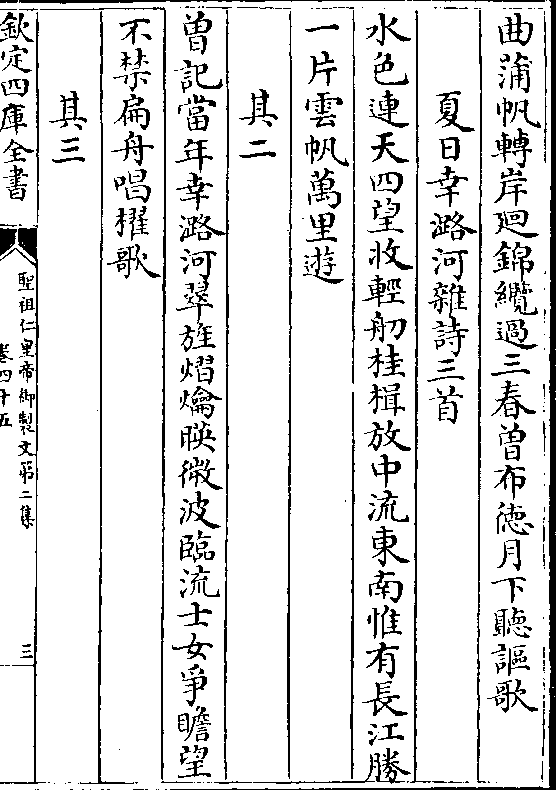 曲蒲帆轉岸廻錦纜過三春曽布徳月下聽謳歌
夏日幸潞河雜詩三首
水色連天四望收輕舠桂楫放中流東南惟有長江勝
一片雲帆萬里遊
其二
曽記當年幸潞河翠旌熠爚暎微波臨流士女爭瞻望
不禁扁舟唱櫂歌
其三
欽定四庫全書
聖祖仁皇帝御製文第二集
卷四十五
三